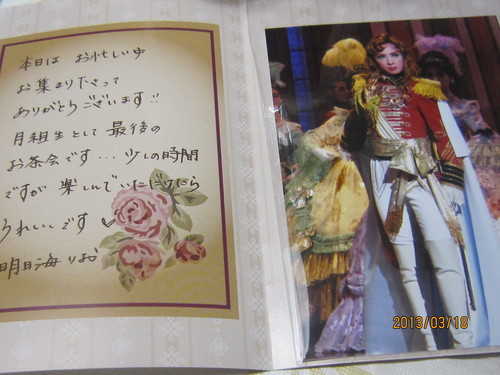 本日は お忙しい中
お集まり下さって
ありがとうございます!!
月組生として 最後の
お茶会です… 少しの時間
ですが 楽しんでいただけたら
うれしいです
明日海りお
2013/03/18